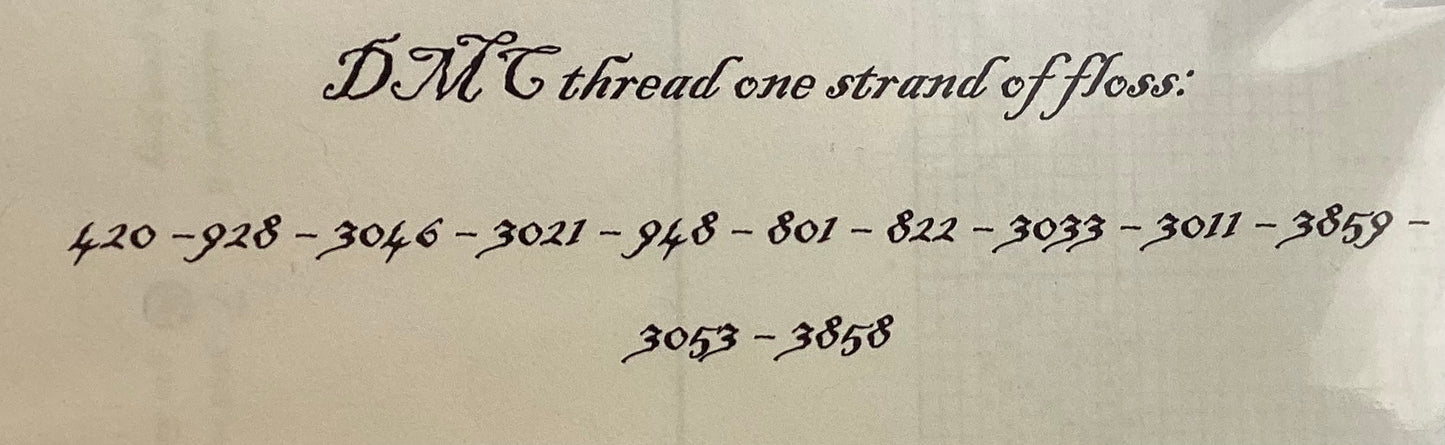 DMC thread one strand of floss:
420 - 928 - 3046 - 3021 - 948 - 801 - 822 - 3033 - 3011 - 3859 -
3053 - 3858